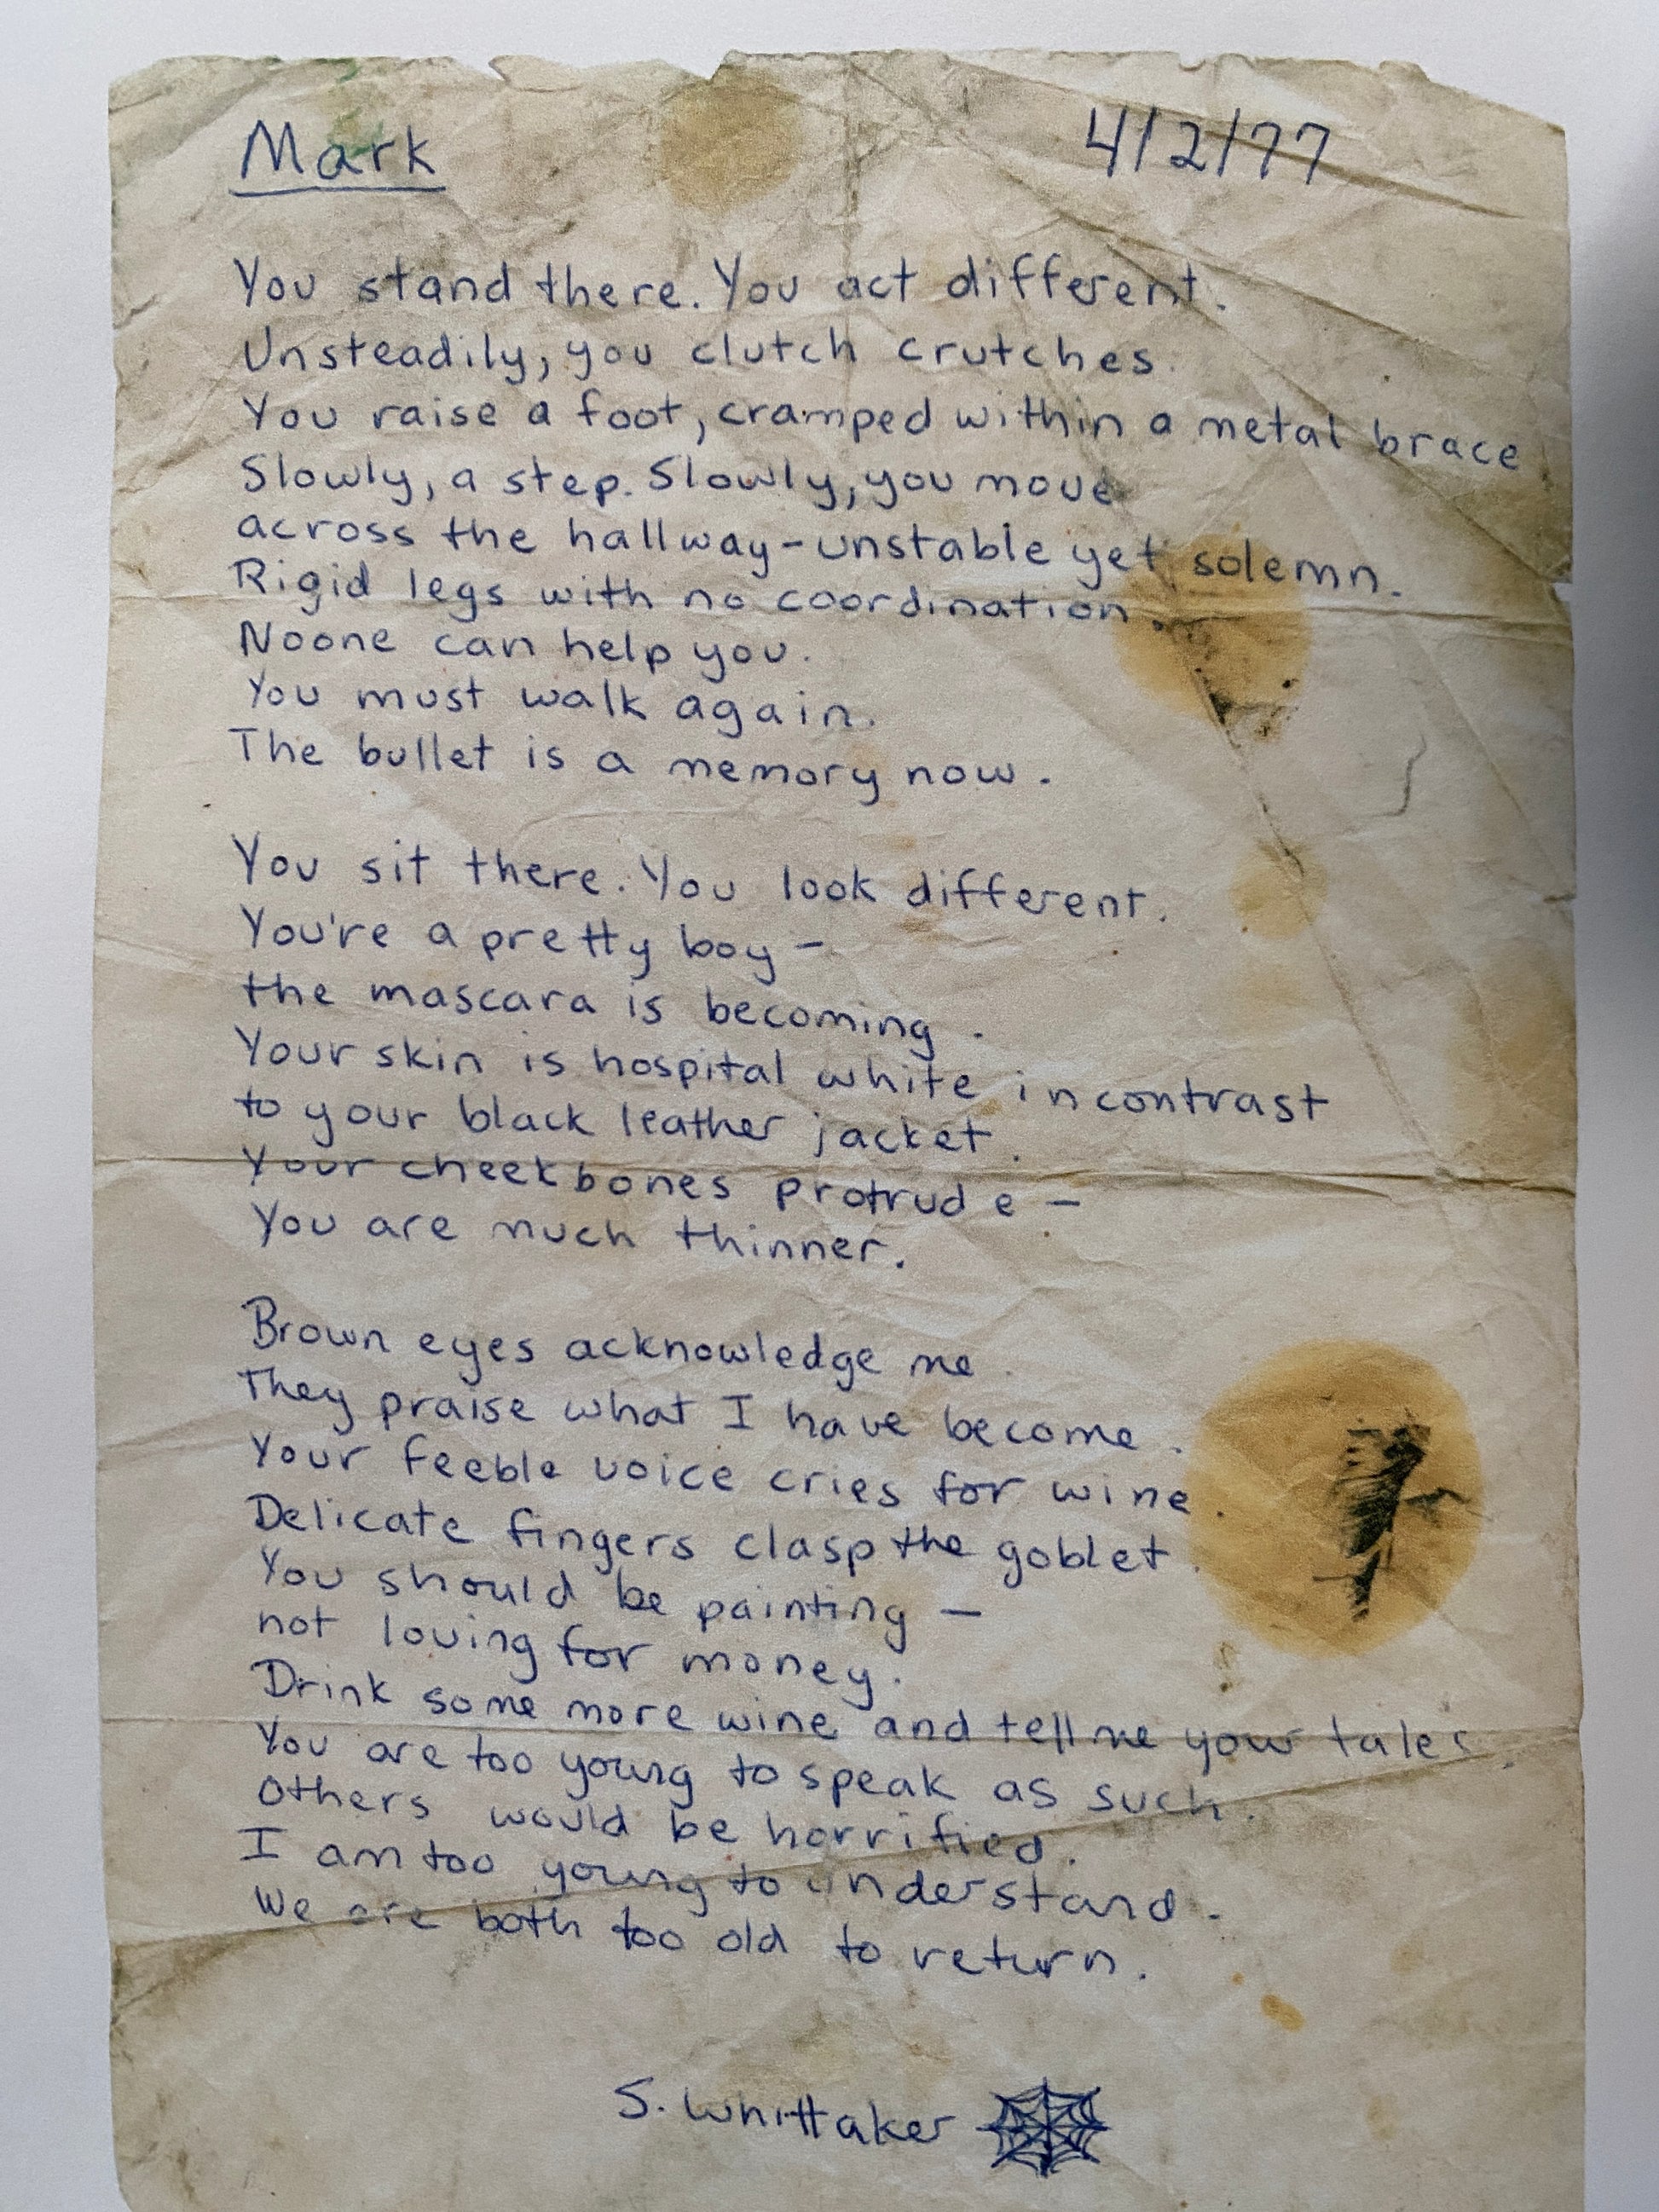 Mark 4/2/77
You stand there. You act different.
Unsteadily, you clutch crutches.
You raise a foot, cramped within a metal brace
Slowly, a step. Slowly, you move
across the hallway - unstable yet solemn.
Rigid legs with no coordination.
Noone can help you.
You must walk again.
The bullet is a memory now.
You sit there. You look different.
You're a pretty boy -
the mascara is becoming.
Your skin is hospital white in contrast
to your black leather jacket.
Your cheekbones protrude -
You are much thinner.
Brown eyes acknowledge me.
They praise what I have become.
Your feeble voice cries for wine.
Delicate fingers clasp the goblet.
You should be painting -
not loving for money.
Drink some more wine and tell me your tales.
You are too young to speak as such.
Others would be horrified.
I am too young to understand.
We are both too old to return.
S. Whittaker